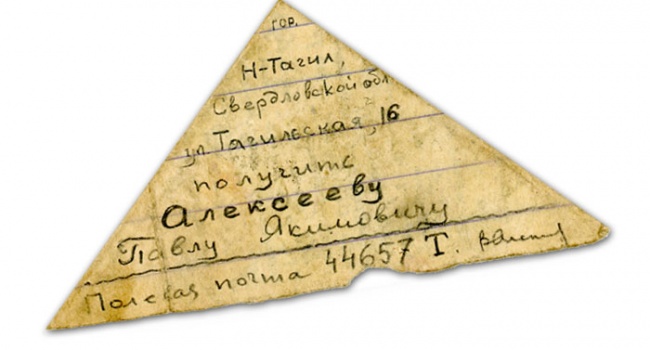 гор.
Н-Тагил,
Свердловской обл
ул Тагильская, 16
получить
Алексееву
Павлу Якимовичу
Полевая почта 44657 Т.